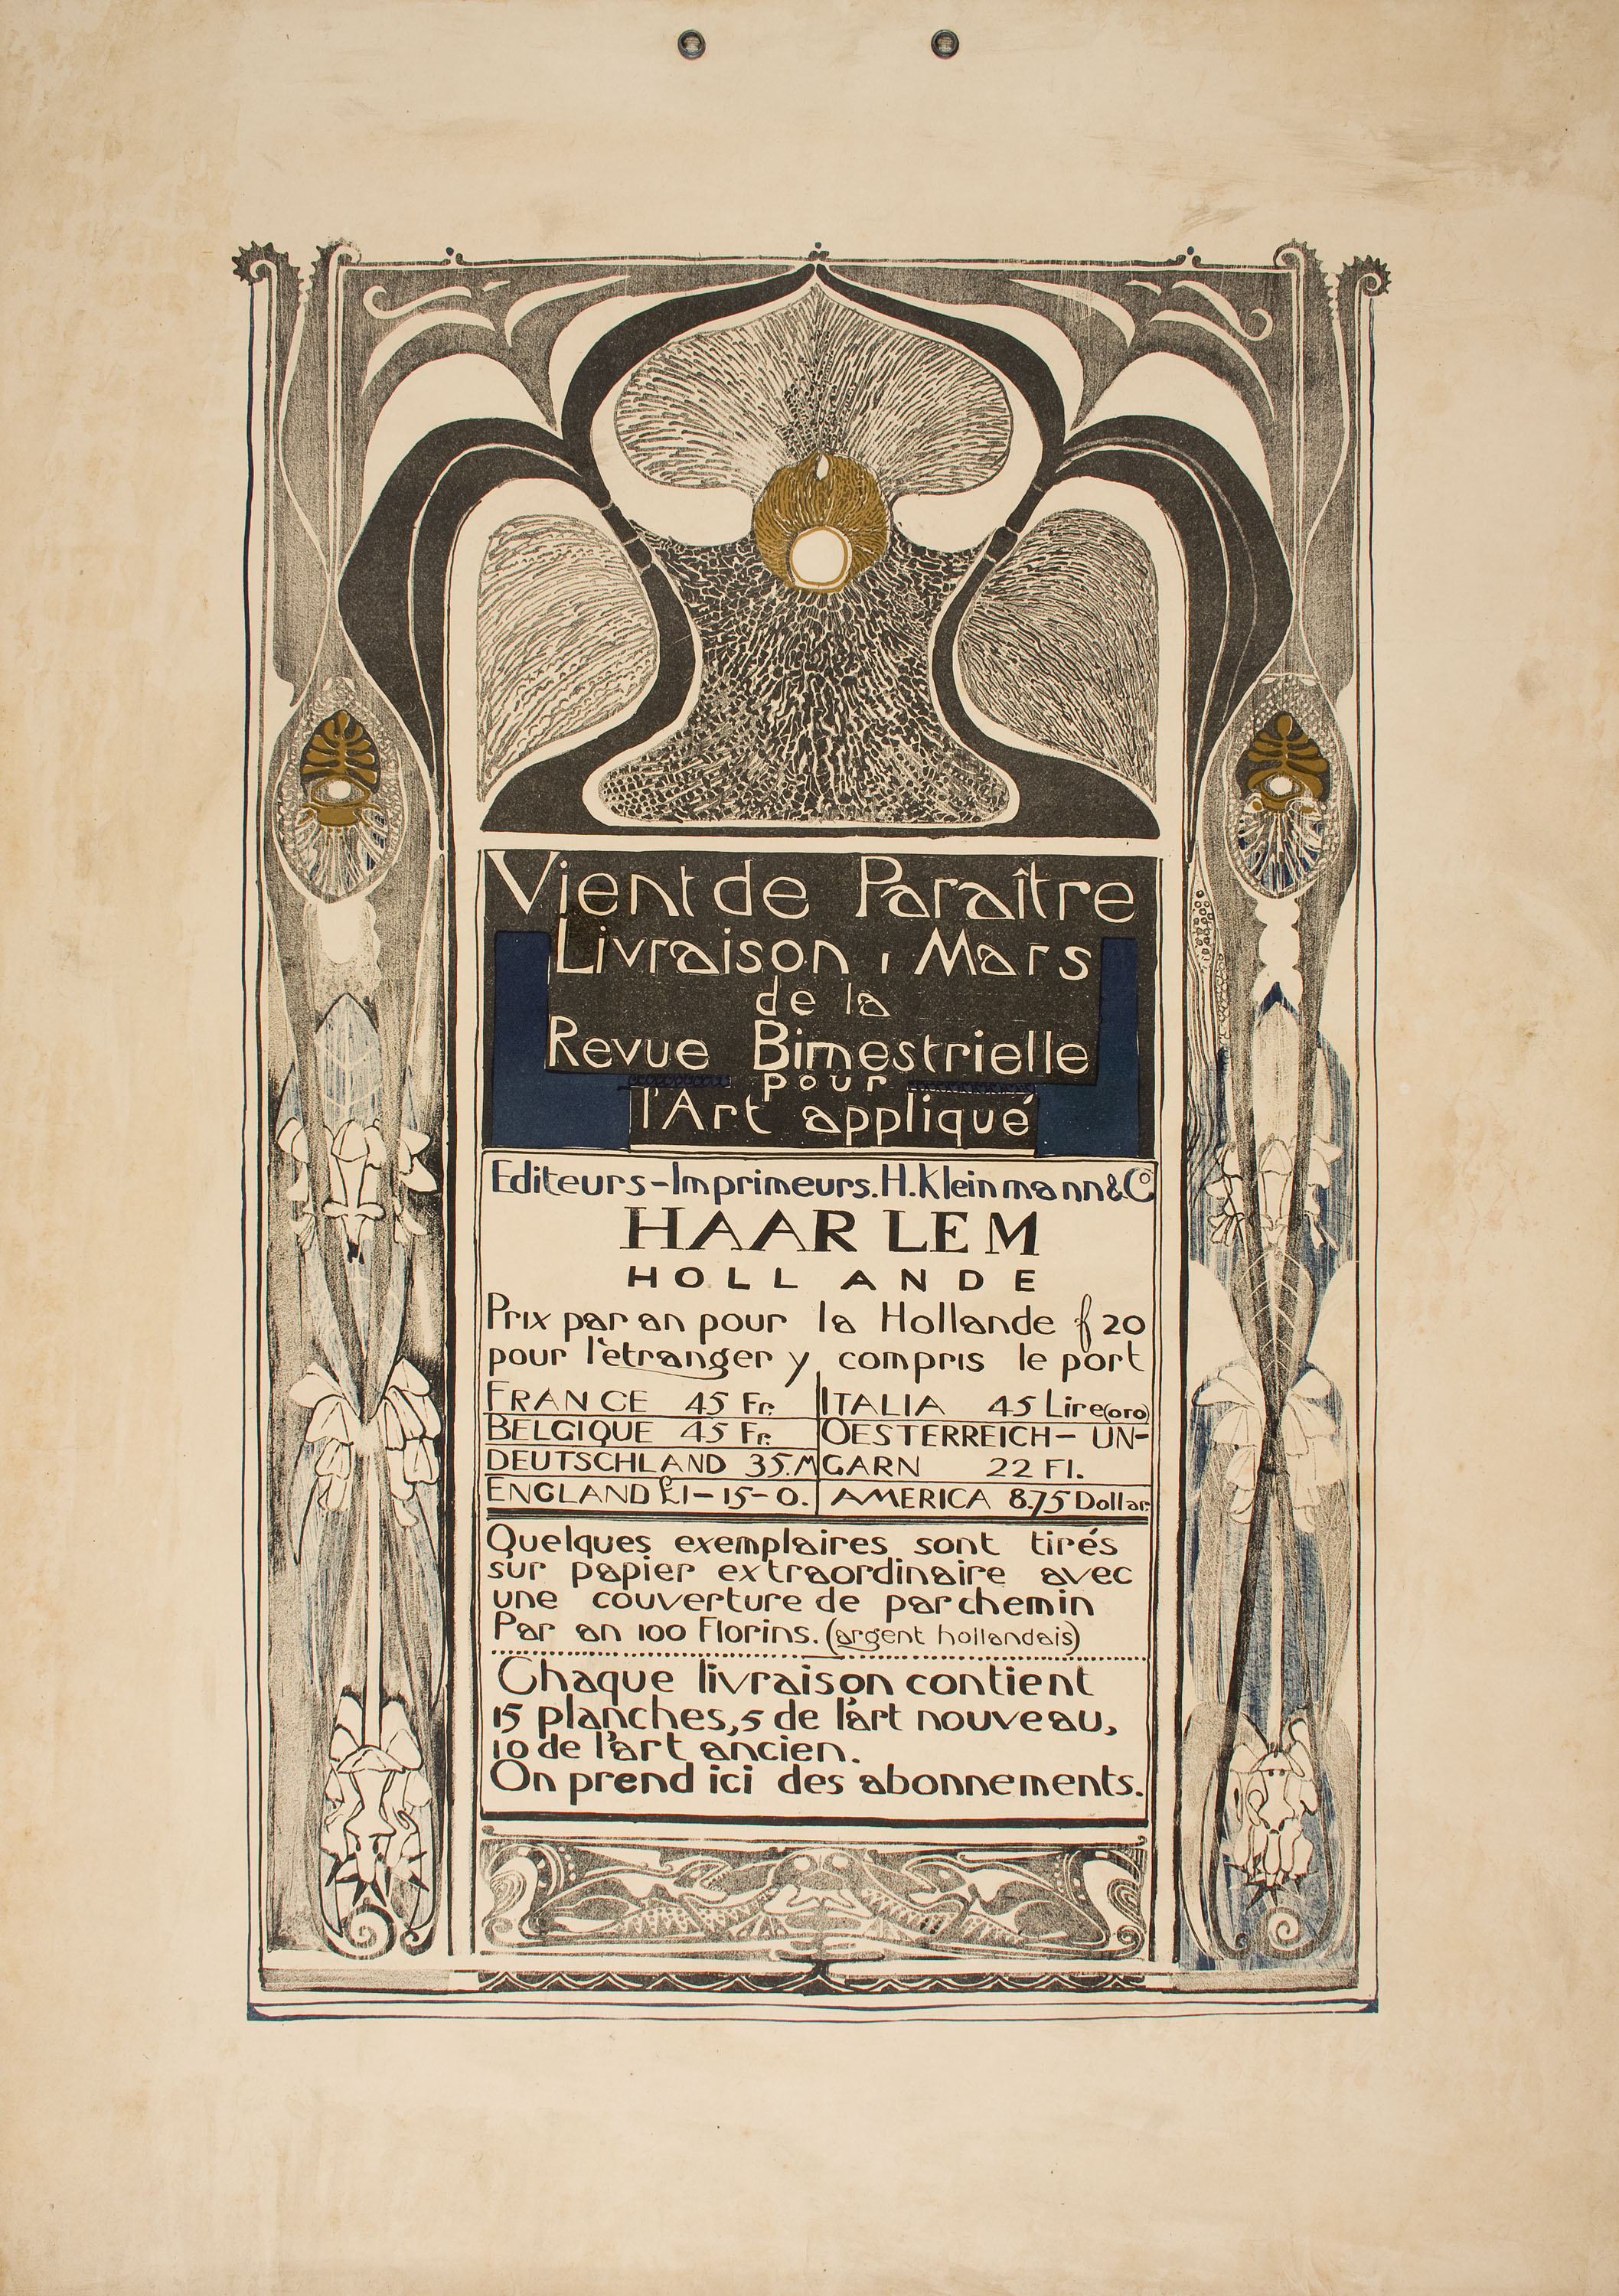 Vient de Paraître
Livraison 1 Mars
de la
Revue Bimestrielle
pour
l'Art appliqué
Editeurs-Imprimeurs. H. Kleinmann & Co
HAARLEM
HOLLANDE
Prix par an pour la Hollande f 20
pour l'etranger y compris le port
FRANCE 45 Fr.
BELGIQUE 45 Fr.
DEUTSCHLAND 35.M
ENGLAND £1-15-0.
ITALIA 45 Lire (oro)
OESTERREICH-UN-
GARN 22 Fl.
AMERICA 8.75 Dollar.
Quelques exemplaires sont tirés
sur papier extraordinaire avec
une couverture de parchemin
Par an 100 Florins. (argent hollandais)
Chaque livraison contient
15 planches, 5 de l'art nouveau,
10 de l'art ancien.
On prend ici des abonnements.